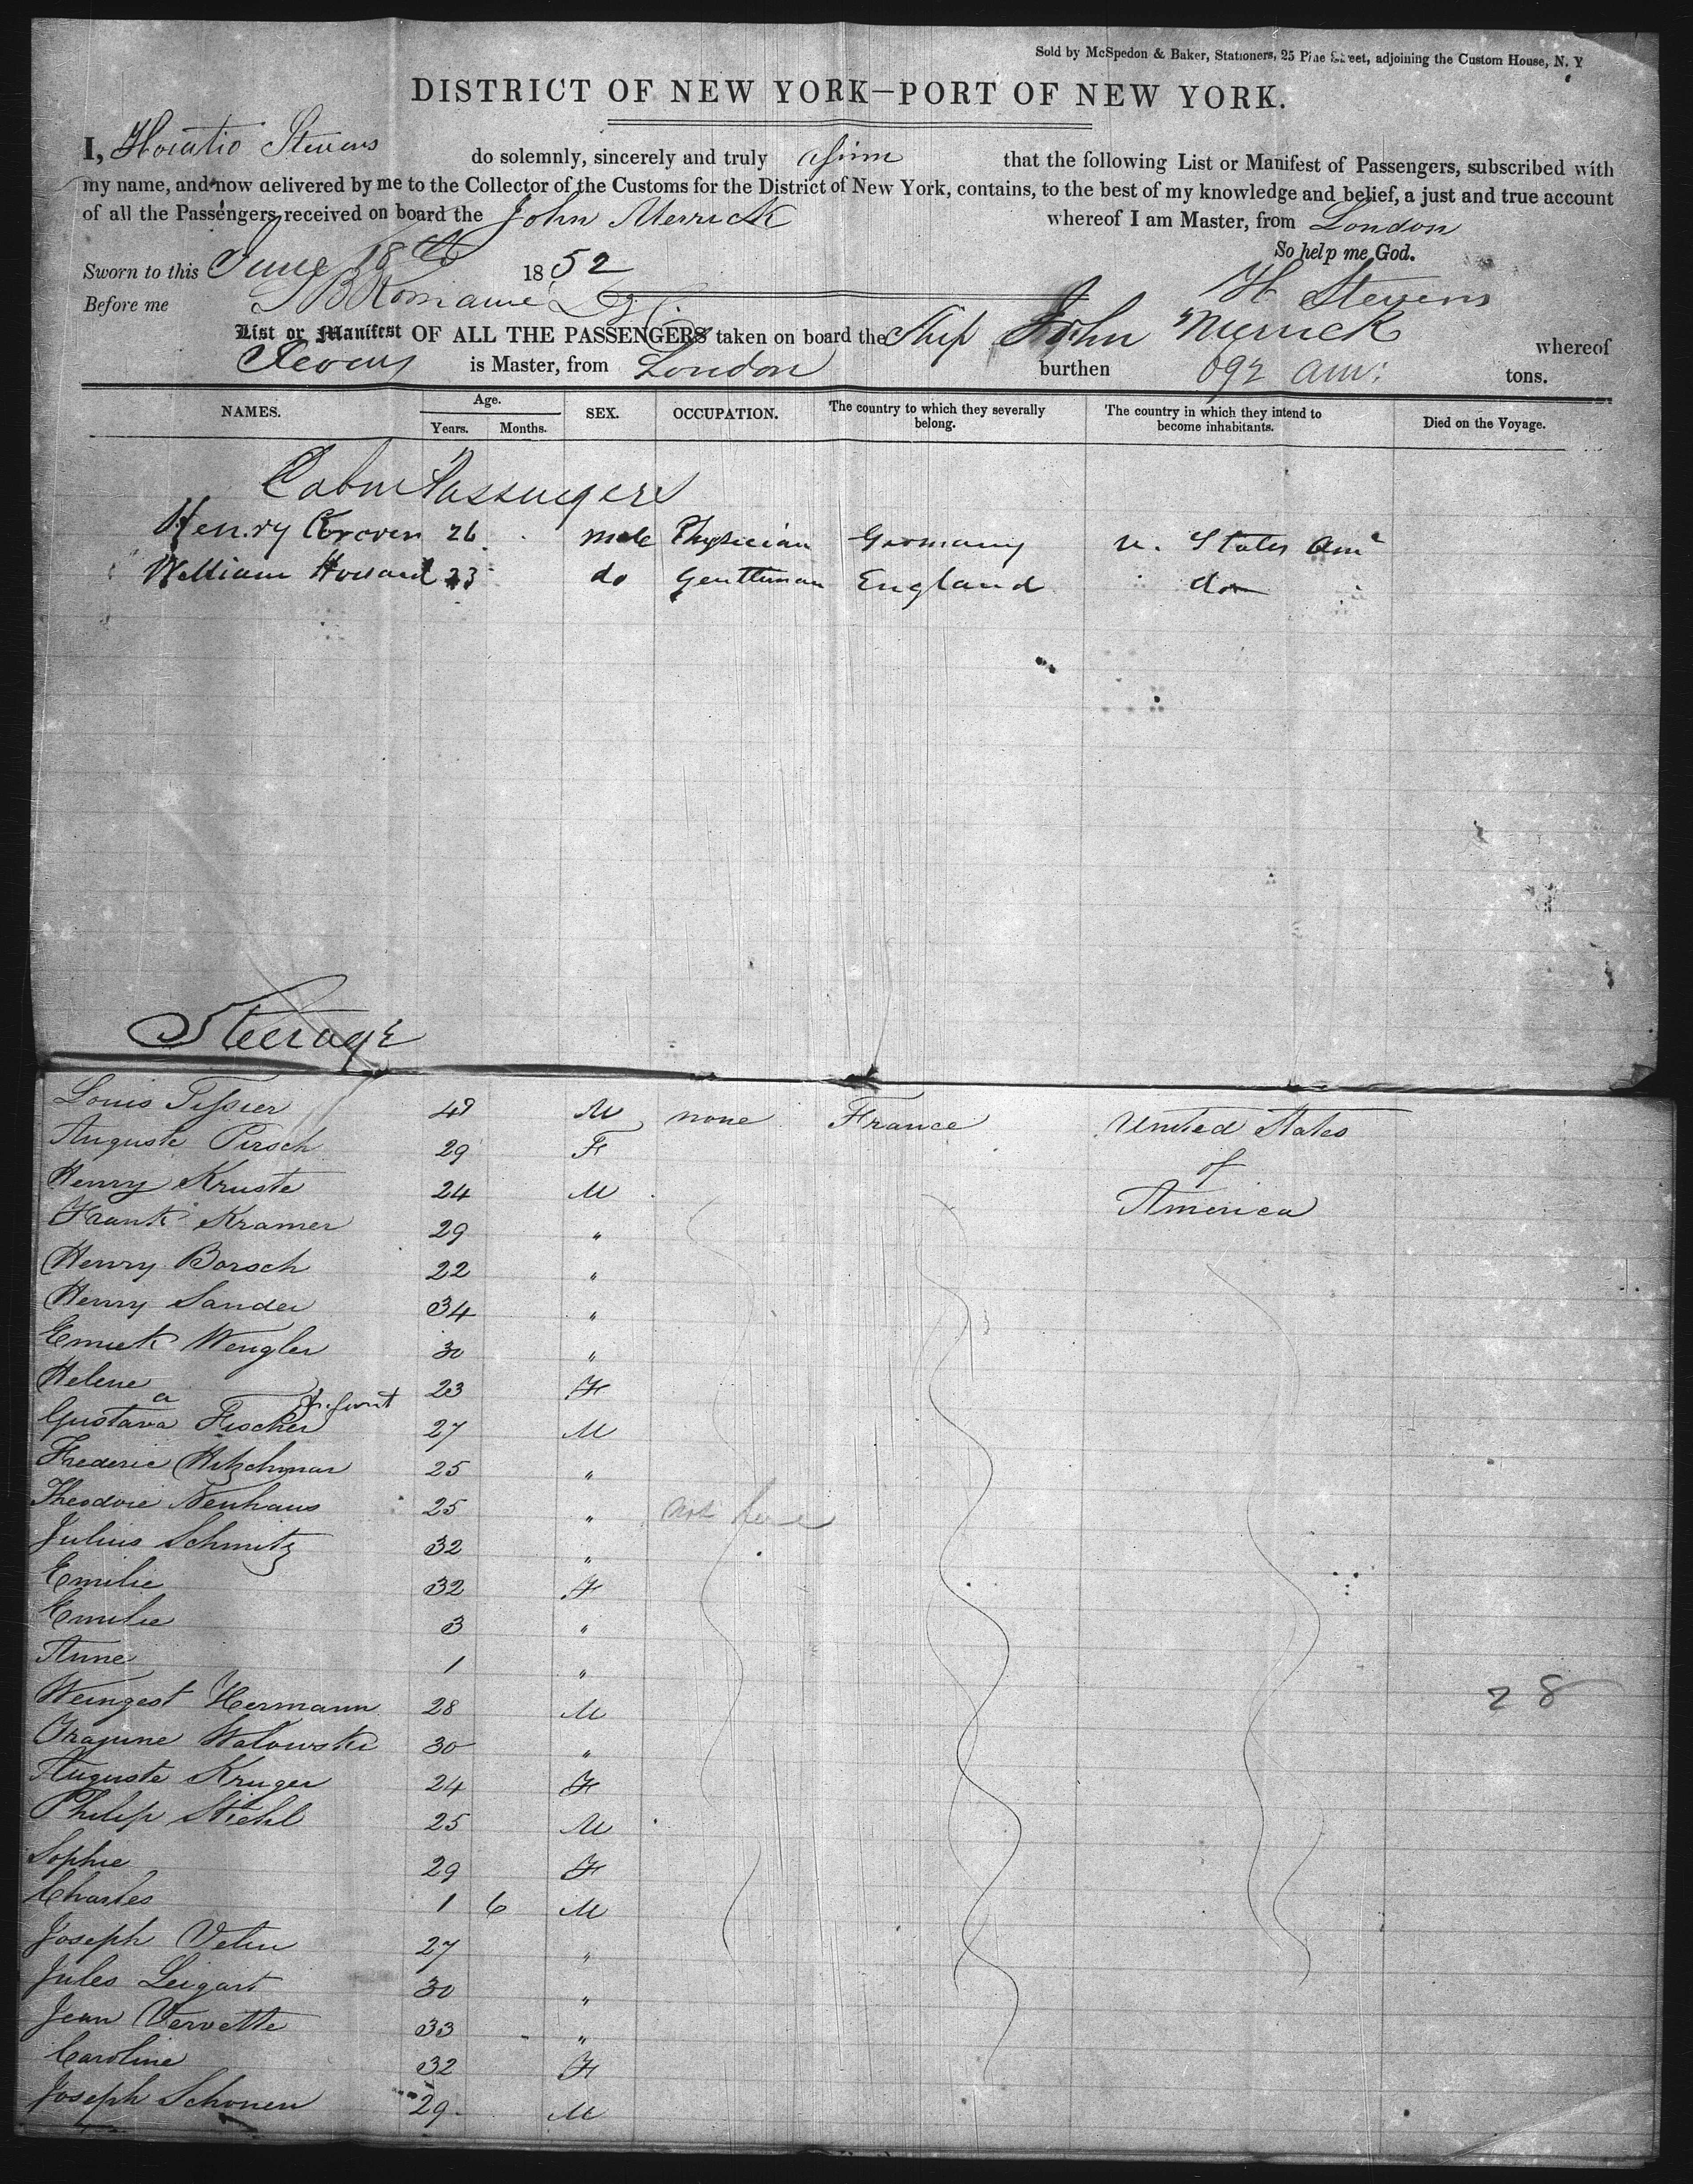 Sold by McSpedon & Baker, Stationers, 25 Pine Street, adjoining the Custom House, N. Y
DISTRICT OF NEW YORK—PORT OF NEW YORK.
I, Horatio Stevens do solemnly, sincerely and truly affirm that the following List or Manifest of Passengers, subscribed with
my name, and now delivered by me to the Collector of the Customs for the District of New York, contains, to the best of my knowledge and belief, a just and true account
of all the Passengers received on board the John Merrick whereof I am Master, from London
So help me God.
Sworn to this June 18th 1852
H Stevens
Before me
List or Manifest OF ALL THE PASSENGERS taken on board the Ship John Merrick whereof
Stevens is Master, from London burthen tons.
NAMES. Age. Years. Months. SEX. OCCUPATION. The country to which they severally belong. The country in which they intend to become inhabitants. Died on the Voyage.
Cabin Passengers
Henry 26 male Physician Germany U. States Am
William Howard 23 do Gentleman England do
Steerage
Louis Tissier 49 M none France United States
Auguste Pirsch 29 F of
Henry Kruste 24 M America
Frank Kramer 29 "
Henry Borsch 22 "
Henry Sander 34 "
Wengler 30 "
Helene 23 F
Gustava Fischer Infant 27 M
Frederic 25 "
Theodore Neuhaus 25 " not here
Julius Schmitz 32 "
Emilie 32 F
Emilie 3 "
Anne 1 "
Weingest Hermann 28 M 28
Walowski 30 "
Auguste Kruger 24 F
Philip Stiehl 25 M
Sophie 29 F
Charles 1 6 M
Joseph 27 "
Jules Leigart 30 "
Jean Vervette 33 "
Caroline 32 F
Joseph Schonen 29 M